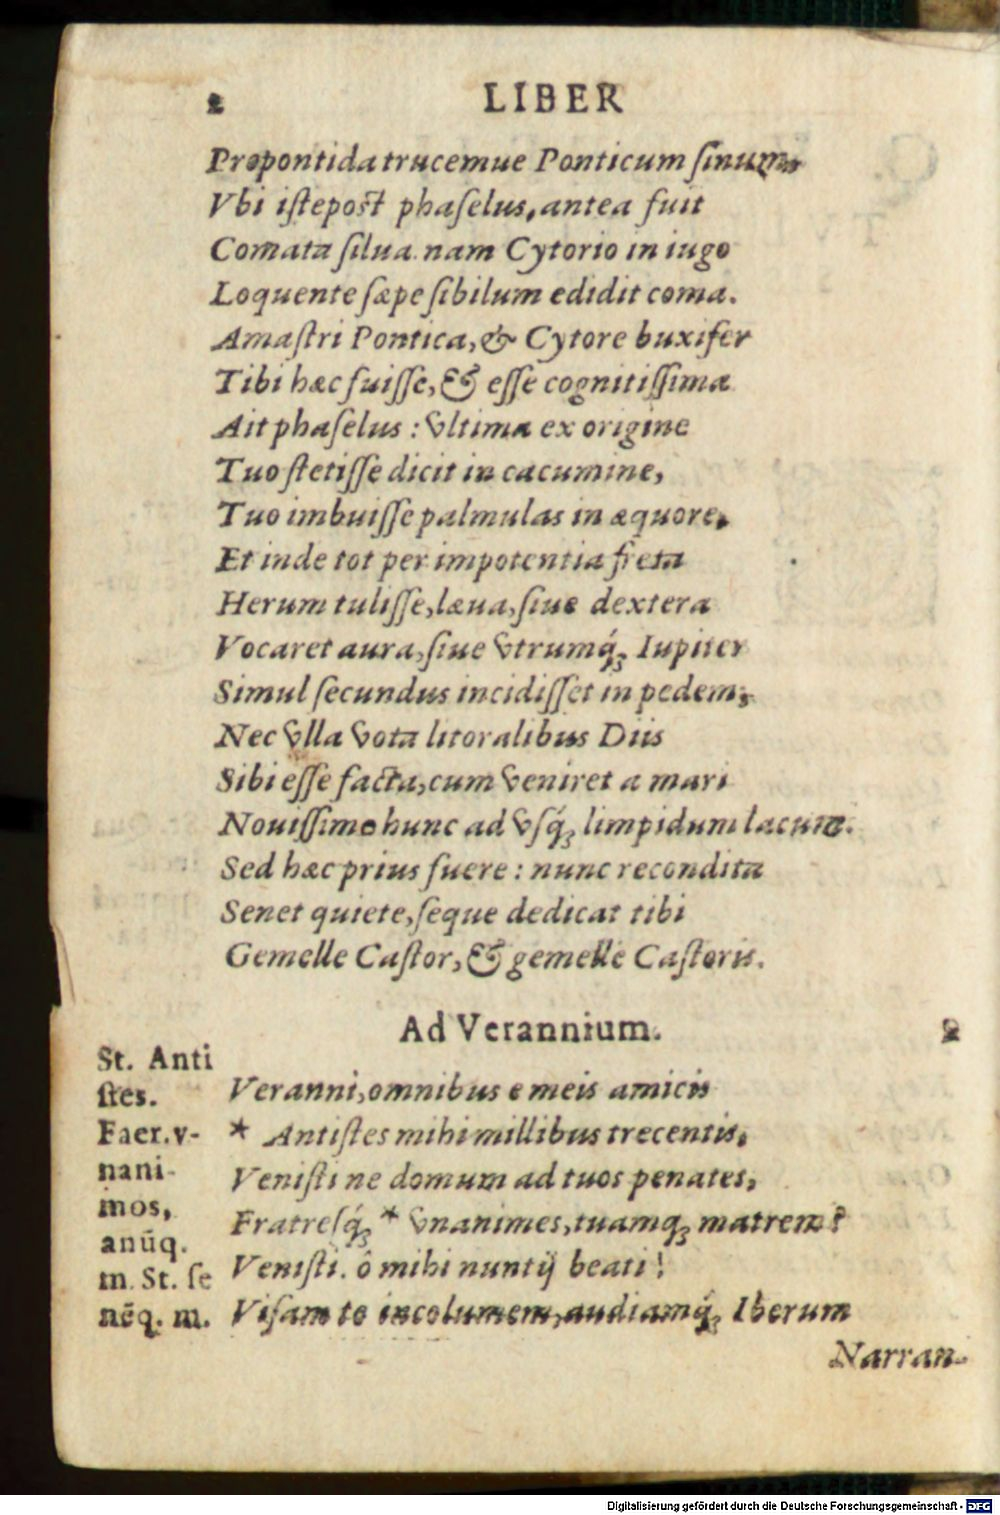 2 LIBER
Propontida trucemue Ponticum ſinum,
Vbi iſte poſt phaſelus, antea fuit
Comata ſilua. nam Cytorio in iugo
Loquente ſæpe ſibilum edidit coma.
Amaſtri Pontica, & Cytore buxifer
Tibi hæc fuiſſe, & eſſe cognitiſſima
Ait phaſelus: vltima ex origine
Tuo ſtetiſſe dicit in cacumine,
Tuo imbuiſſe palmulas in æquore,
Et inde tot per impotentia freta
Herum tuliſſe, læua, ſiue dextera
Vocaret aura, ſiue vtrumq́; Iupiter
Simul ſecundus incidiſſet in pedem;
Nec vlla vota litoralibus Diis
Sibi eſſe facta, cum veniret a mari
Nouiſſimo hunc ad vſq́; limpidum lacum.
Sed hæc prius fuere: nunc recondita
Senet quiete, ſeque dedicat tibi
Gemelle Caſtor, & gemelle Caſtoris.
Ad Verannium. 9
Veranni, omnibus e meis amicis
* Antiſtes mihi millibus trecentis,
Veniſti ne domum ad tuos penates,
Fratreſq́; * vnanimes, tuamq; matrem?
Veniſti. ô mihi nuntij beati!
Viſam te incolumem, audiamq́; Iberum
Narran-
St. Anti
ſtes.
Faer. v-
nani-
mos,
anūq.
m. St. ſe
nēq. m.
Digitalisierung gefördert durch die Deutsche Forschungsgemeinschaft - DFG